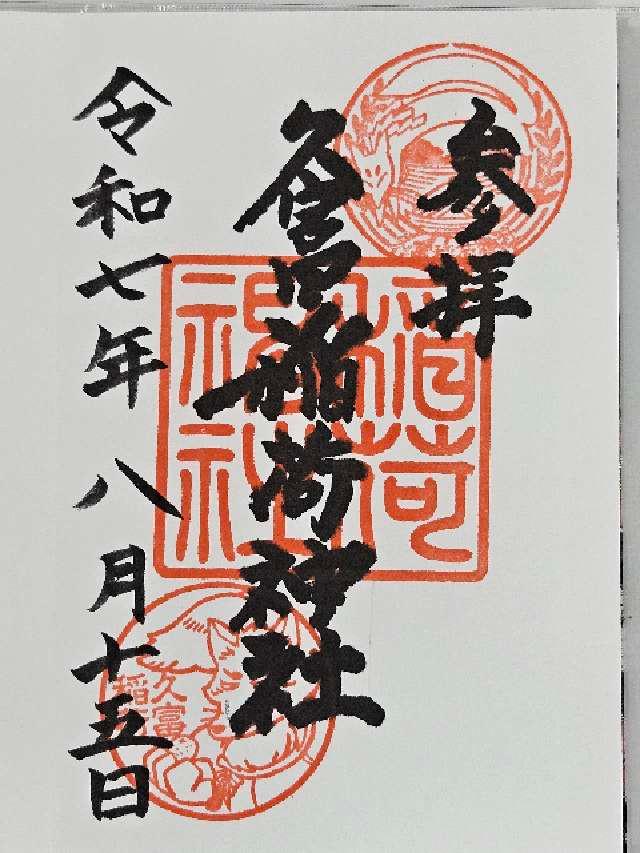 参拝
久富稲荷神社
令和七年八月十五日
稲荷神社
久富稲